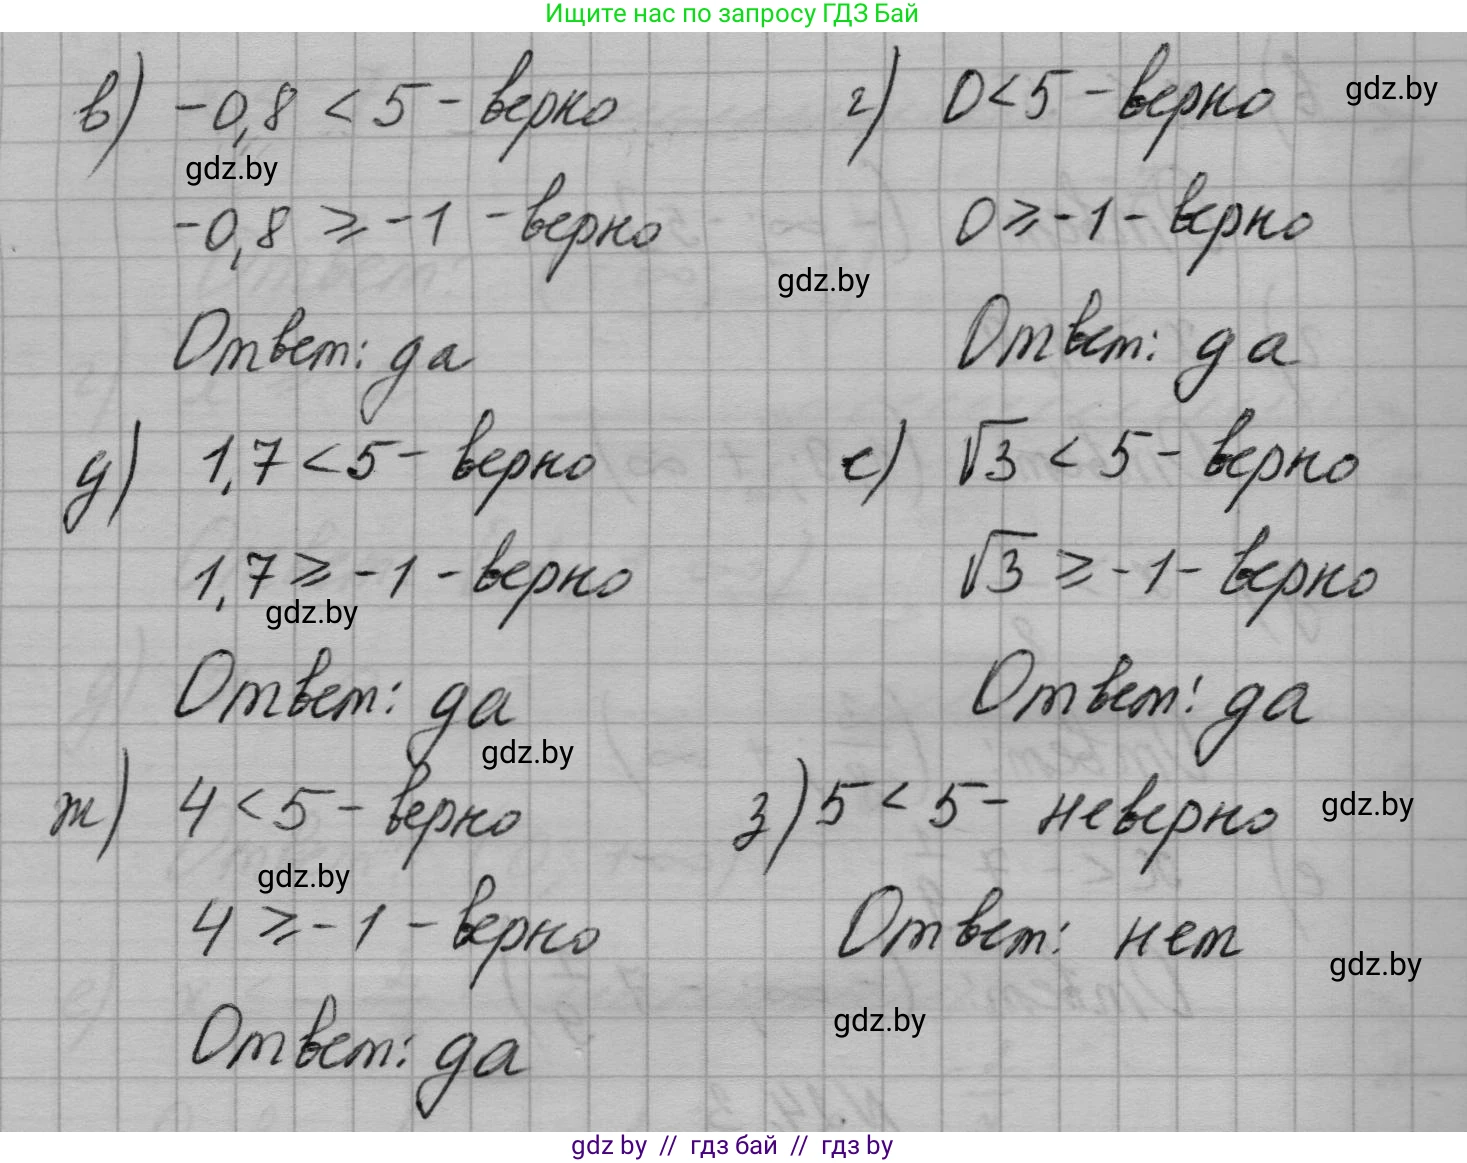 Ищите нас по запросу ГДЗ Бай
в) -0,8 < 5 - верно
г) 0<5 - верно
gdz.by
gdz.by
-0,8 ⩾ -1 - верно
0⩾-1 - верно
gdz.by
Ответ: да
Ответ: да
д) 1,7 < 5 - верно
е) √3 < 5 - верно
1,7 ⩾ -1 - верно
√3 ⩾ -1 - верно
gdz.by
Ответ: да
Ответ: да
gdz.by
ж) 4 < 5 - верно
з) 5 < 5 - неверно
gdz.by
gdz.by
4 ⩾ -1 - верно
Ответ: нет
gdz.by
gdz.by
Ответ: да
gdz by // гдз бай // гдз by